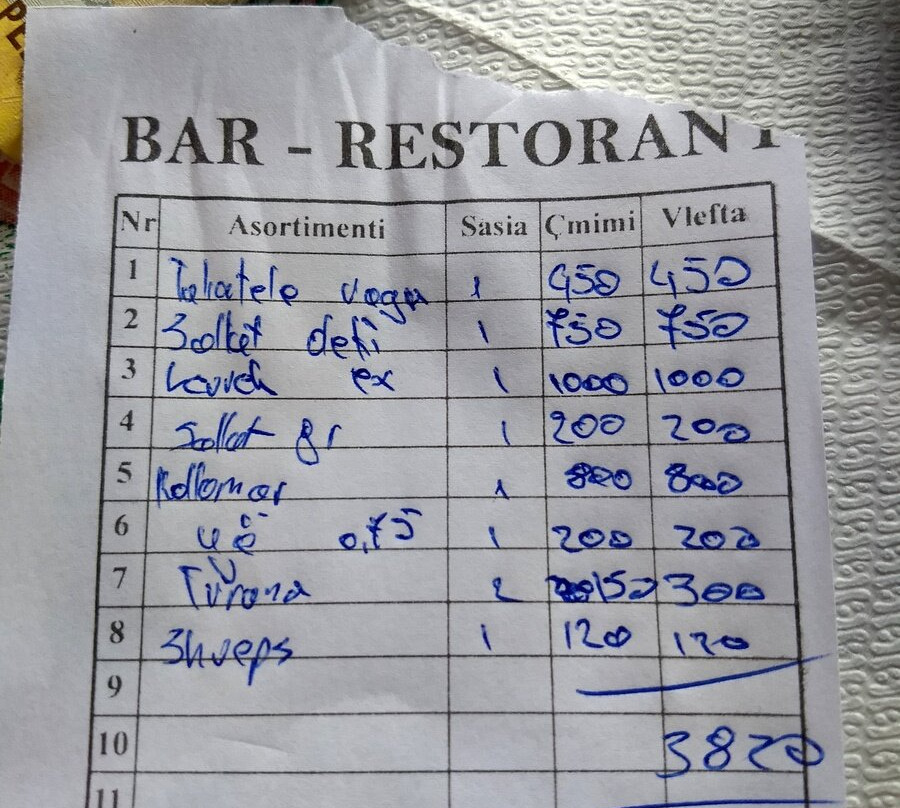 BAR - RESTORANT
Nr Asortimenti Sasia Çmimi Vlefta
1 1 450 450
2 deti 1 750 750
3 ex 1 1000 1000
4 Sallat gr 1 200 200
5 Kallamar 1 800 800
6 ujë 0,75 1 200 200
7 Tirona 2 150 300
8 Shveps 1 120 120
9
10 3820
11